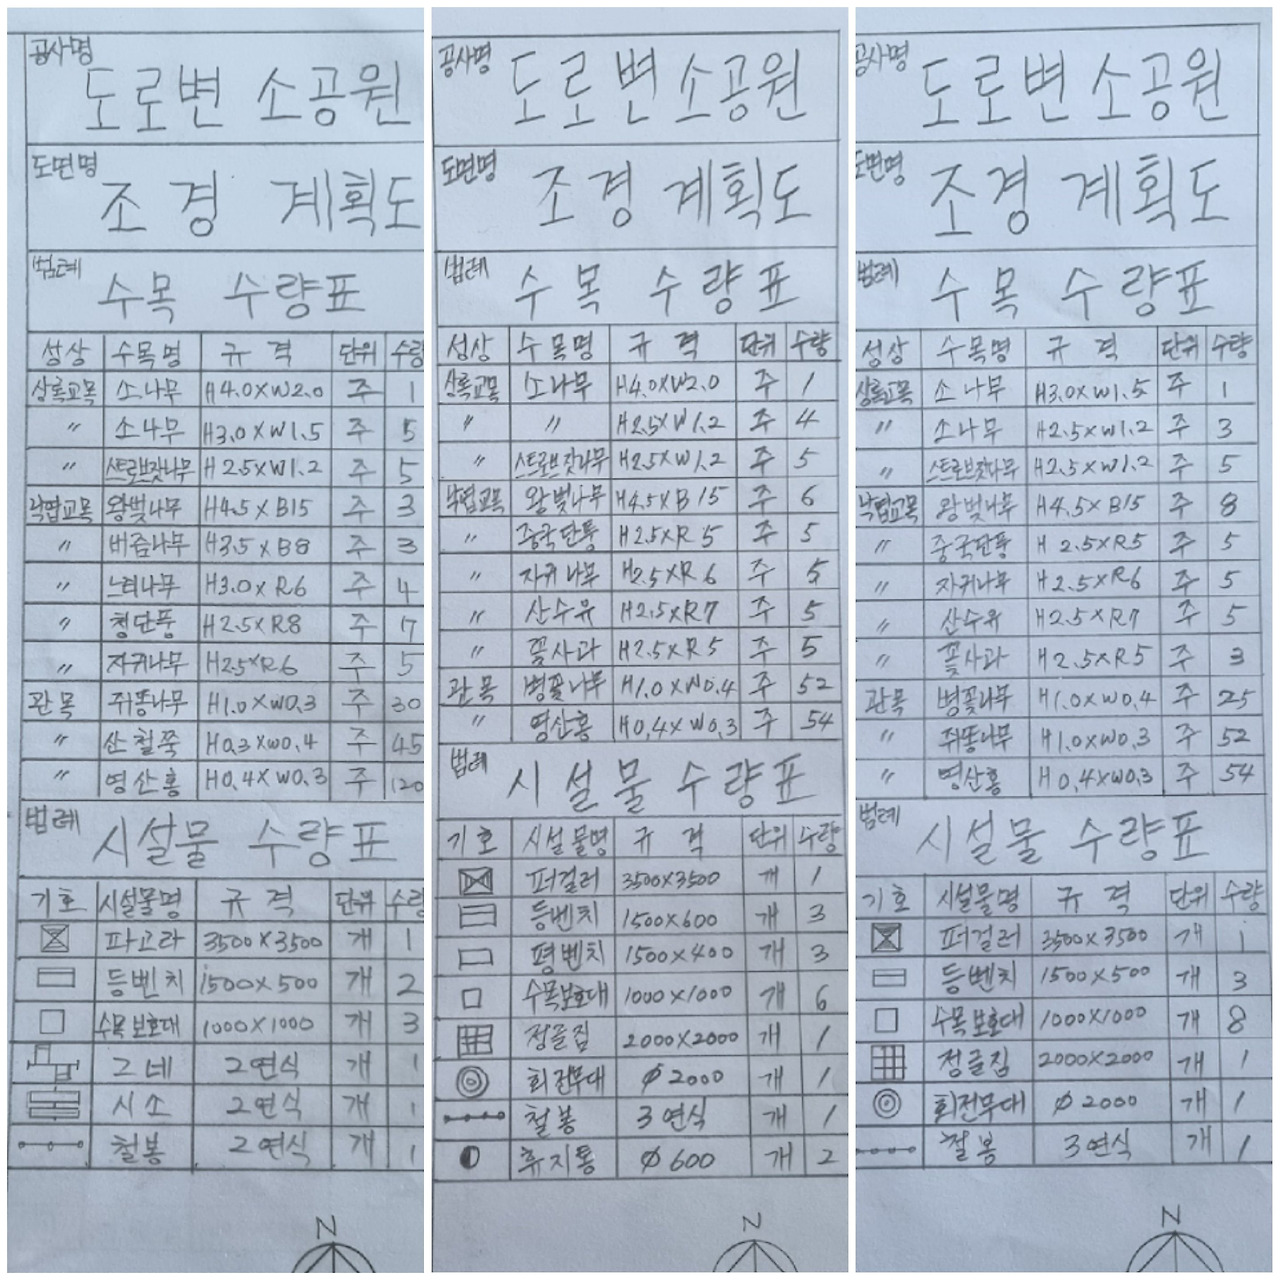 공사명
도로변 소공원
도면명
조경 계획도
범례
수목 수량표
성상 수목명 규격 단위 수량
상록교목 소나무 H4.0×W2.0 주 1
〃 소나무 H3.0×W1.5 주 5
〃 스트로브잣나무 H2.5×W1.2 주 5
낙엽교목 왕벚나무 H4.5×B15 주 3
〃 버즘나무 H3.5×B8 주 3
〃 느티나무 H3.0×R6 주 4
〃 청단풍 H2.5×R8 주 7
〃 자귀나무 H2.5×R6 주 5
관목 쥐똥나무 H1.0×W0.3 주 30
〃 산철쭉 H0.3×W0.4 주 45
〃 영산홍 H0.4×W0.3 주 120
범례
시설물 수량표
기호 시설물명 규격 단위 수량
파고라 3500×3500 개 1
등벤치 1500×500 개 2
수목보호대 1000×1000 개 3
그네 2연식 개 1
시소 2연식 개 1
철봉 2연식 개 1
N
공사명
도로변 소공원
도면명
조경 계획도
범례
수목 수량표
성상 수목명 규격 단위 수량
상록교목 소나무 H4.0×W2.0 주 1
〃 〃 H2.5×W1.2 주 4
〃 스트로브잣나무 H2.5×W1.2 주 5
낙엽교목 왕벚나무 H4.5×B15 주 6
〃 중국단풍 H2.5×R5 주 5
〃 자귀나무 H2.5×R6 주 5
〃 산수유 H2.5×R7 주 5
〃 꽃사과 H2.5×R5 주 5
관목 병꽃나무 H1.0×W0.4 주 52
〃 영산홍 H0.4×W0.3 주 54
범례
시설물 수량표
기호 시설물명 규격 단위 수량
퍼걸러 3500×3500 개 1
등벤치 1500×600 개 3
평벤치 1500×400 개 3
수목보호대 1000×1000 개 6
정글짐 2000×2000 개 1
회전무대 ∅2000 개 1
철봉 3연식 개 1
휴지통 ∅600 개 2
N
공사명
도로변 소공원
도면명
조경 계획도
범례
수목 수량표
성상 수목명 규격 단위 수량
상록교목 소나무 H3.0×W1.5 주 1
〃 소나무 H2.5×W1.2 주 3
〃 스트로브잣나무 H2.5×W1.2 주 5
낙엽교목 왕벚나무 H4.5×B15 주 8
〃 중국단풍 H2.5×R5 주 5
〃 자귀나무 H2.5×R6 주 5
〃 산수유 H2.5×R7 주 5
〃 꽃사과 H2.5×R5 주 3
관목 병꽃나무 H1.0×W0.4 주 25
〃 쥐똥나무 H1.0×W0.3 주 52
〃 영산홍 H0.4×W0.3 주 54
범례
시설물 수량표
기호 시설물명 규격 단위 수량
퍼걸러 3500×3500 개 1
등벤치 1500×500 개 3
수목보호대 1000×1000 개 8
정글짐 2000×2000 개 1
회전무대 ∅2000 개 1
철봉 3연식 개 1
N